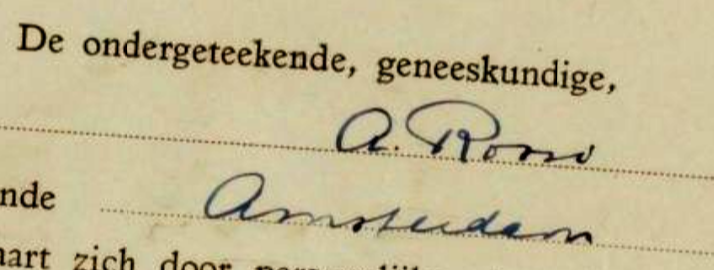 De ondergeteekende, geneeskundige,
A.
nde Amsterdam
zich door